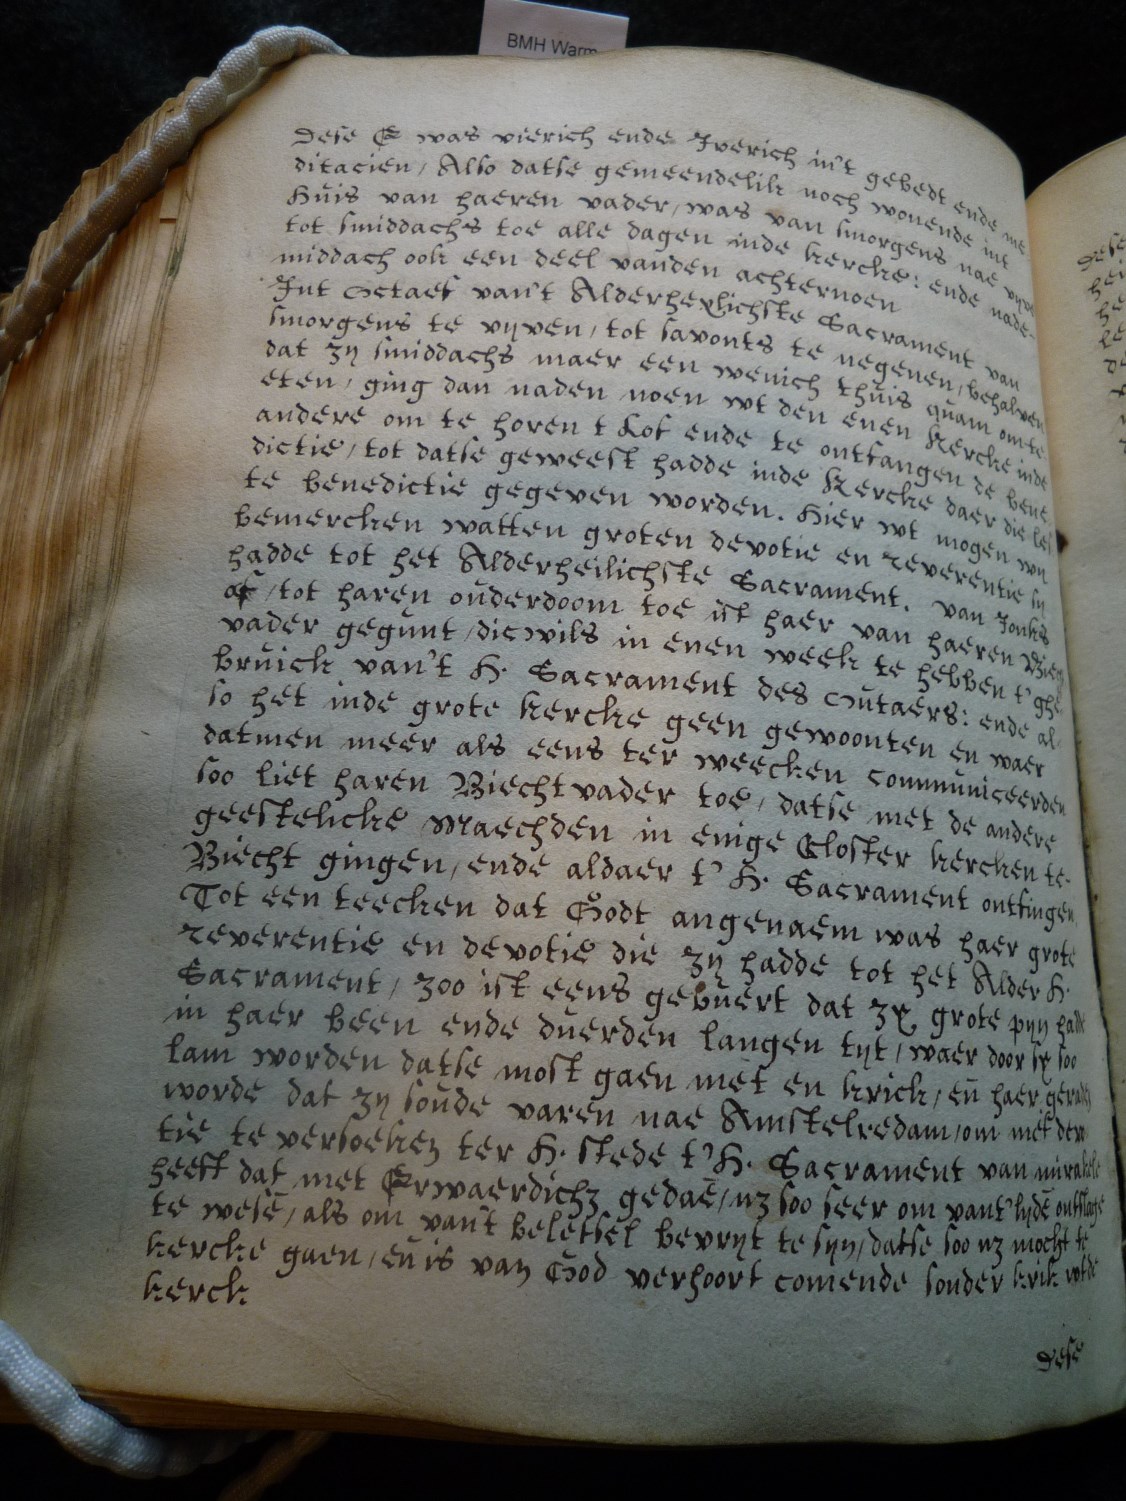 BMH Warm
Dese E was vierich ende Iverich in't gebedt ende me
ditacien, Also datse gemeendelik noch wonende int
Huis van haeren vader, was van smorgens nae vyve
tot smiddachs toe alle dagen inde kercke: ende nade
middach ook een deel vanden achternoen
Int Octaef van't Alderheylichste Sacrament van
smorgens te vyven, tot savonts te negenen, behalven
dat zy smiddachs maer een wenich thuis quam om te
eten, ging dan naden noen wt den enen Kercke inde
andere om te horen t Lof ende te ontfangen de bene
dictie, tot datse geweest hadde inde Kercke daer die les
te benedictie gegeven worden. Hier wt mogen wy
bemercken watten groten devotie en reverentie sy
hadde tot het Alderheilichste Sacrament. van Jonks
af, tot haren ouderdoom toe ist haer van haeren Biech
vader gegunt, dicwils in enen week te hebben t'ghe
bruick van't H. Sacrament des Outaers: ende al
so het inde grote kercke geen gewoonten en waer
datmen meer als eens ter weecken communiceerden
soo liet haren Biechtvader toe, datse met de andere
geestelicke Maechden in enige Closter kercken te
Biecht gingen, ende aldaer t' H. Sacrament ontfingen
Tot een teecken dat Godt angenaem was haer grote
reverentie en devotie die zy hadde tot het Alder H.
Sacrament, zoo ist eens gebuert dat zy grote pyn hadde
in haer been ende duerden langen tyt, waer door sy soo
lam worden datse most gaen met en krick, en haer geraden
worde dat zy soude varen nae Amstelredam, om met der
tie te versoeken ter H. stede t'H. Sacrament van mirakele
heeft dat met Erwaerdich gedae, soo seer om vant lyde ontslage
te wese, als om van't beletsel bevryt te syn, datse soo mocht te
kercke gaen, en is van God verhoort comende sonder krik wt de
kerck
Dese